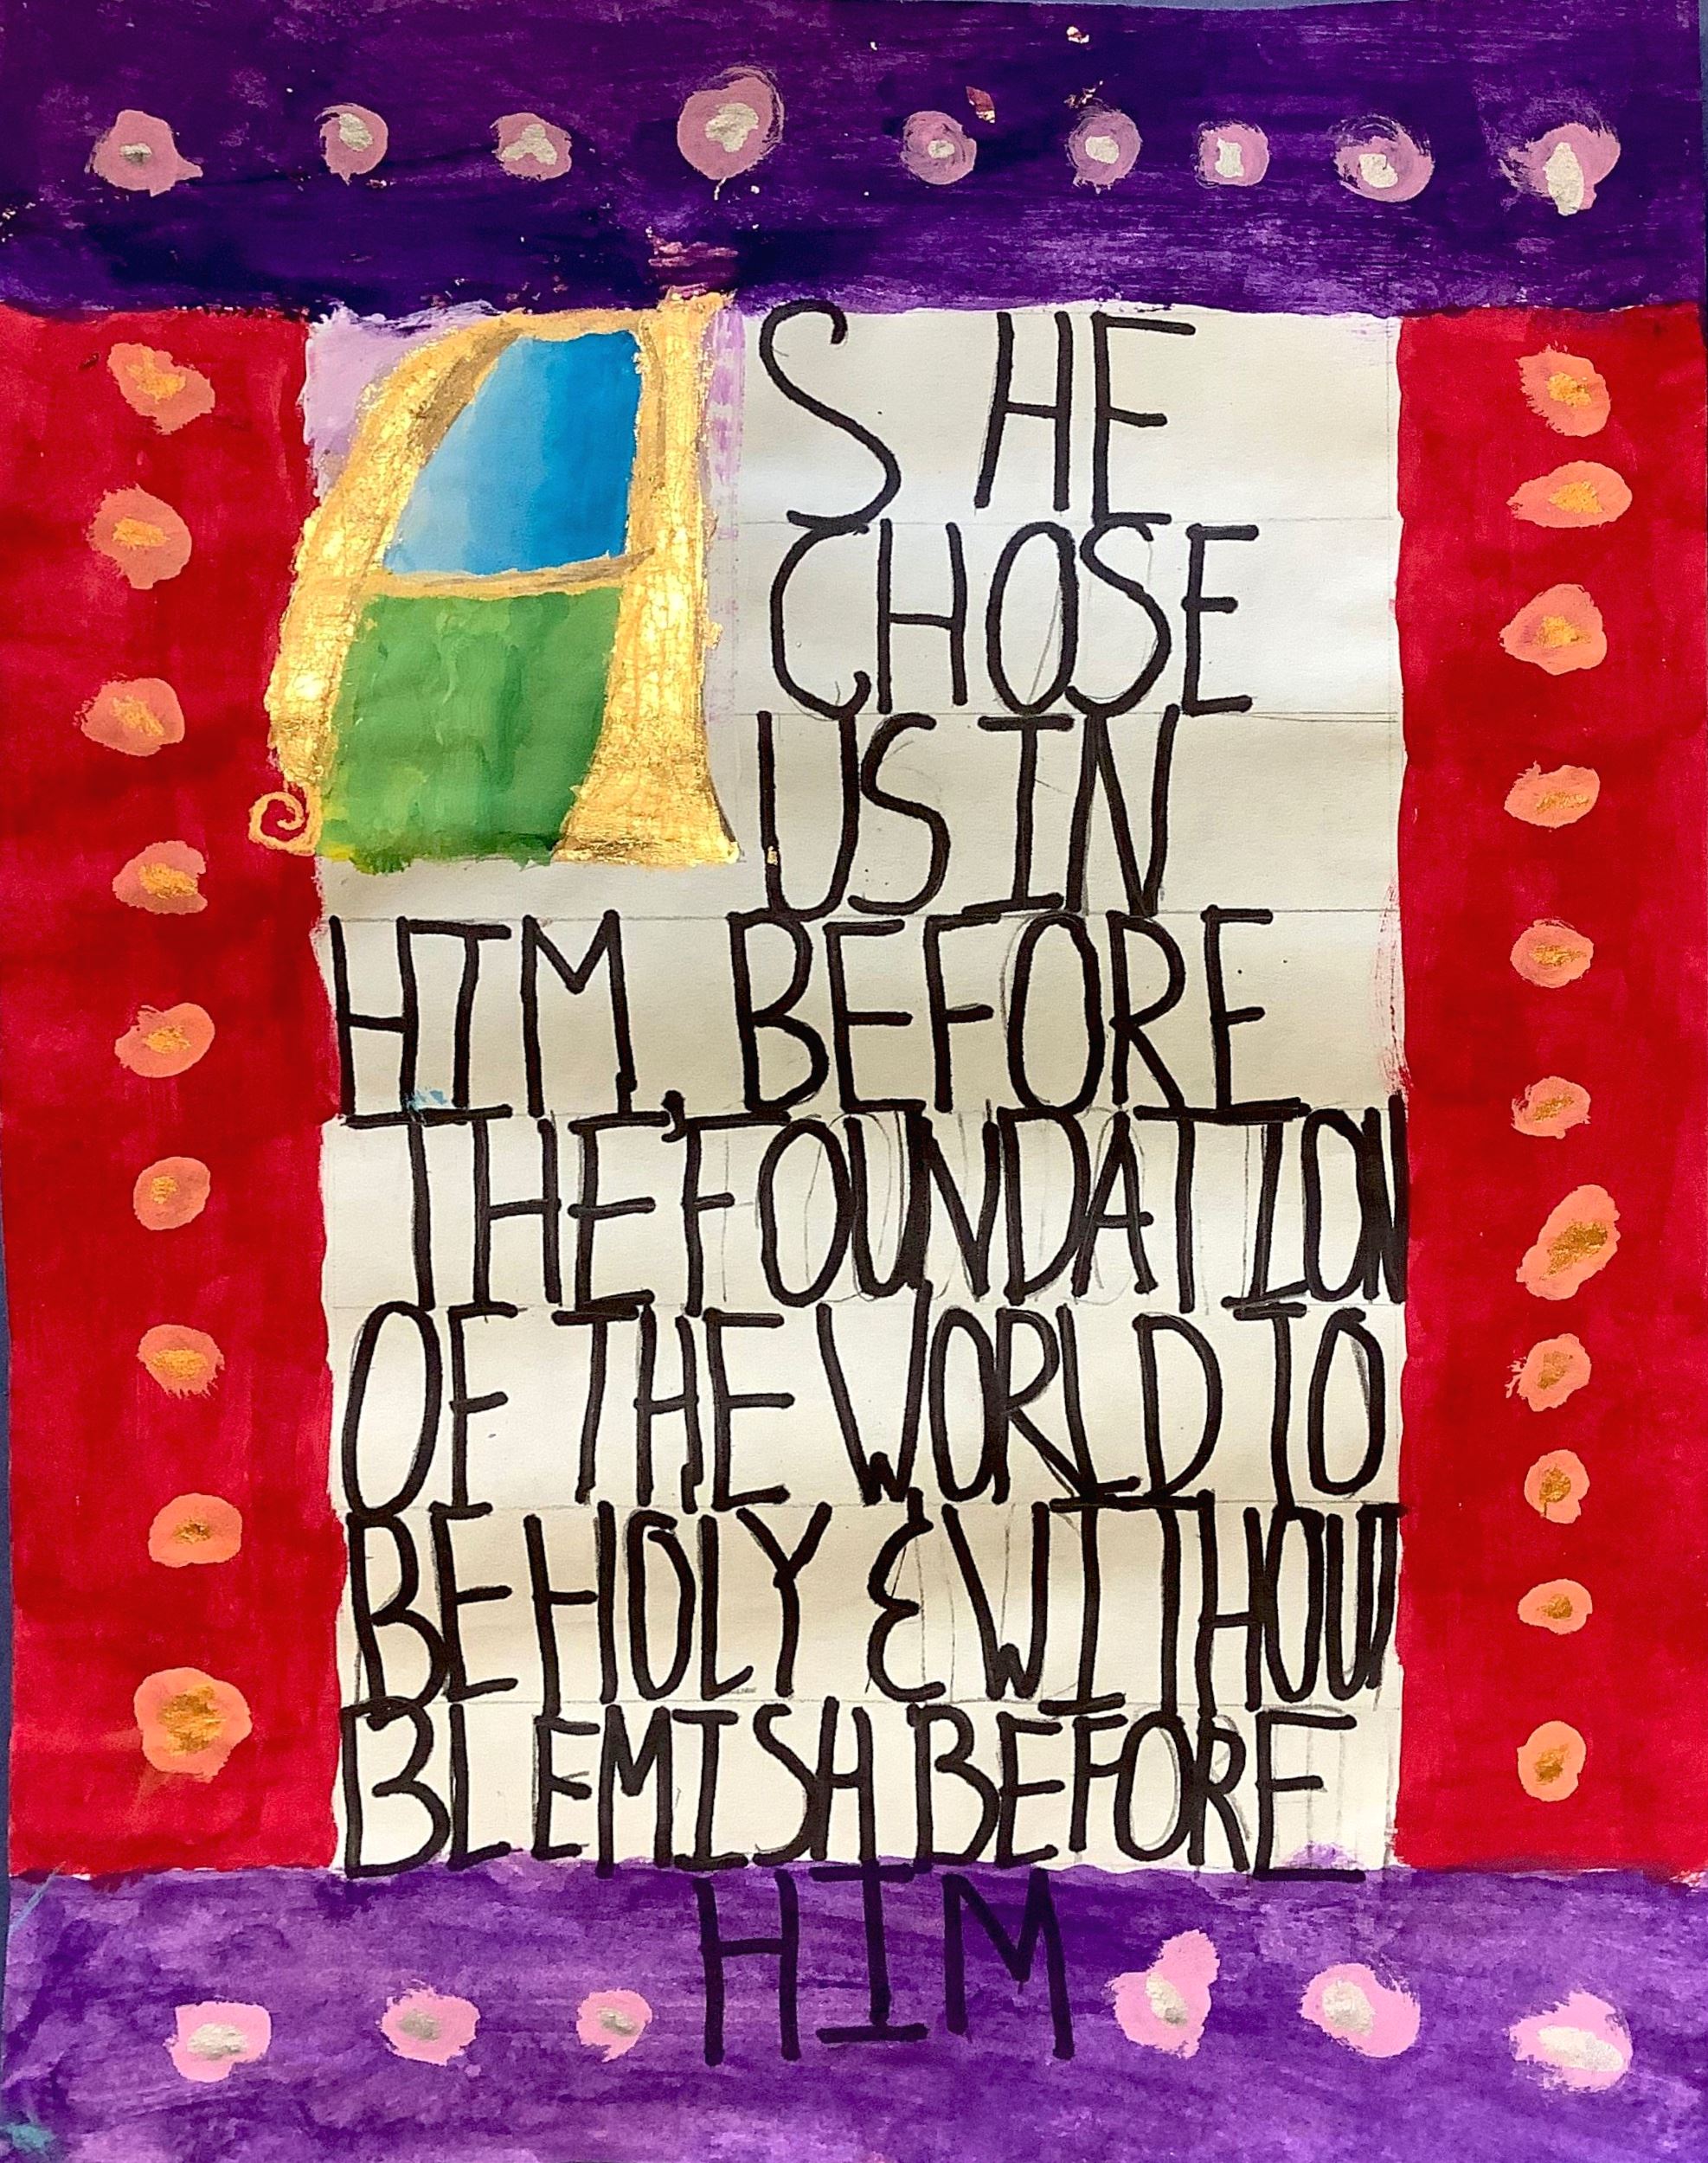 AS HE
CHOSE
US IN
HIM, BEFORE
THE FOUNDATION
OF THE WORLD TO
BE HOLY & WITHOUT
BLEMISH BEFORE
HIM